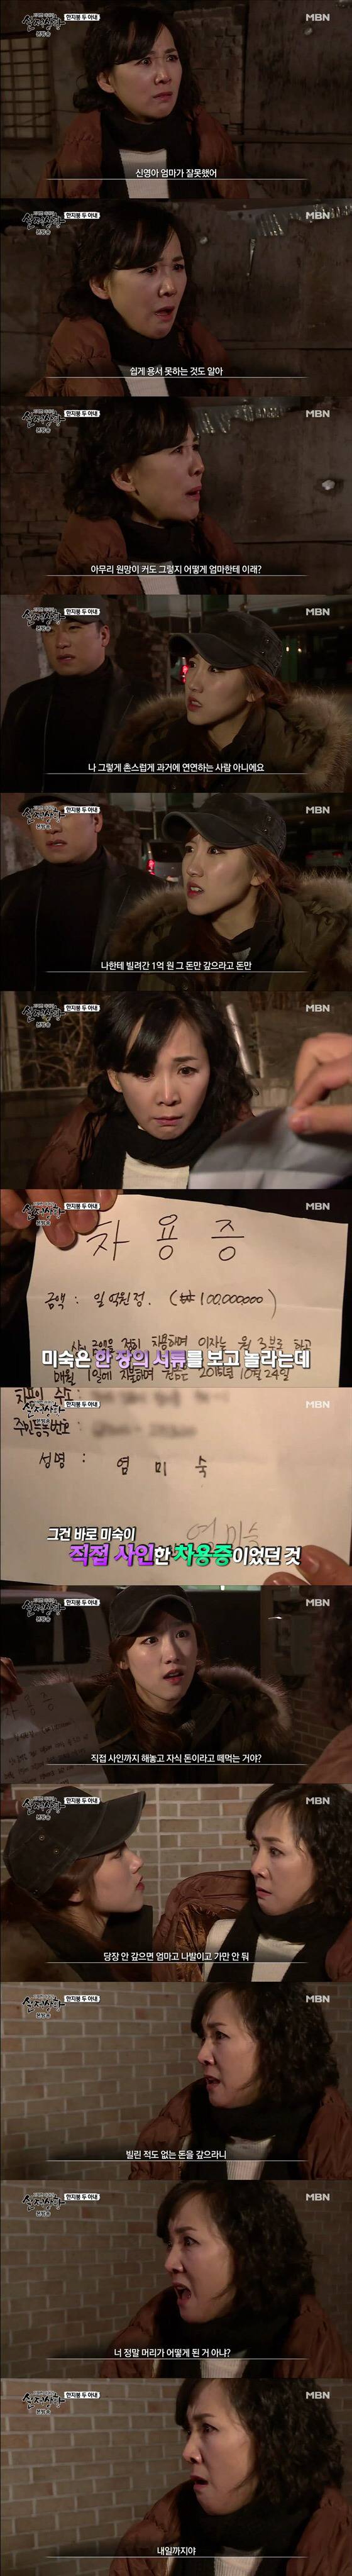 한지붕 두 아내
MBN
신영아 엄마가 잘못했어
한지붕 두 아내
MBN
쉽게 용서 못하는 것도 알아
한지붕 두 아내
MBN
아무리 원망이 커도 그렇지 어떻게 엄마한테 이래?
한지붕 두 아내
MBN
나 그렇게 촌스럽게 과거에 연연하는 사람 아니에요
한지붕 두 아내
MBN
나한테 빌려간 1억 원 그 돈만 갚으라고 돈만
한지붕 두 아내
MBN
한지붕 두 아내
MBN
차 용 증
금액 : 일 억원정. (₩ 100,000,000)
미숙은 한 장의 서류를 보고 놀라는데
매월 1일에 지불하며
2015년 10월 24일
한지붕 두 아내
MBN
주민등록번호 :
성명 : 염 미 숙
그건 바로 미숙이
직접 사인한 차용증이었던 것
한지붕 두 아내
MBN
직접 사인까지 해놓고 자식 돈이라고 떼먹는 거야?
한지붕 두 아내
MBN
당장 안 갚으면 엄마고 나발이고 가만 안 둬
한지붕 두 아내
MBN
빌린 적도 없는 돈을 갚으라니
한지붕 두 아내
MBN
너 정말 머리가 어떻게 된 거 아냐?
한지붕 두 아내
MBN
내일까지야